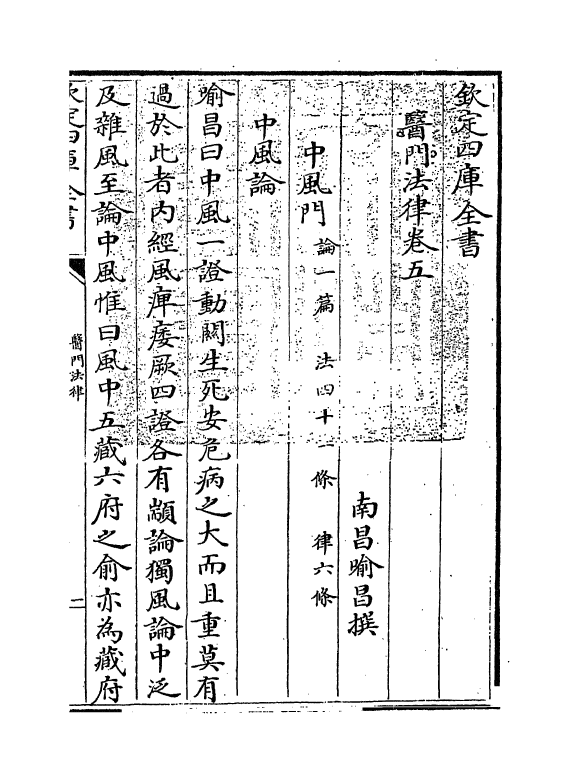 欽定四庫全書
醫門法律卷五
南昌喻昌撰
中風門 論一篇 法四十一條 律六條
中風論
喻昌曰中風一證動關生死安危病之大而且重莫有
過於此者內經風痺痿厥四證各有顓論獨風論中泛
及雜風至論中風惟曰風中五藏六府之俞亦為藏府
欽定四庫全書
醫門法律
二